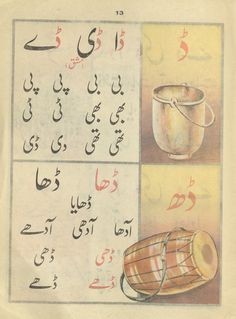 13
ڈ
ڈا ڈی ڈے
مشق
بی بی پی پی
بھی بھی ٹی ٹی
تھی تھی دی ڈی
ڈھ
ڈھا ڈھا
ڈھایا
آدھا آدھی آدھے
ڈھی ڈھی
ڈھے ڈھے